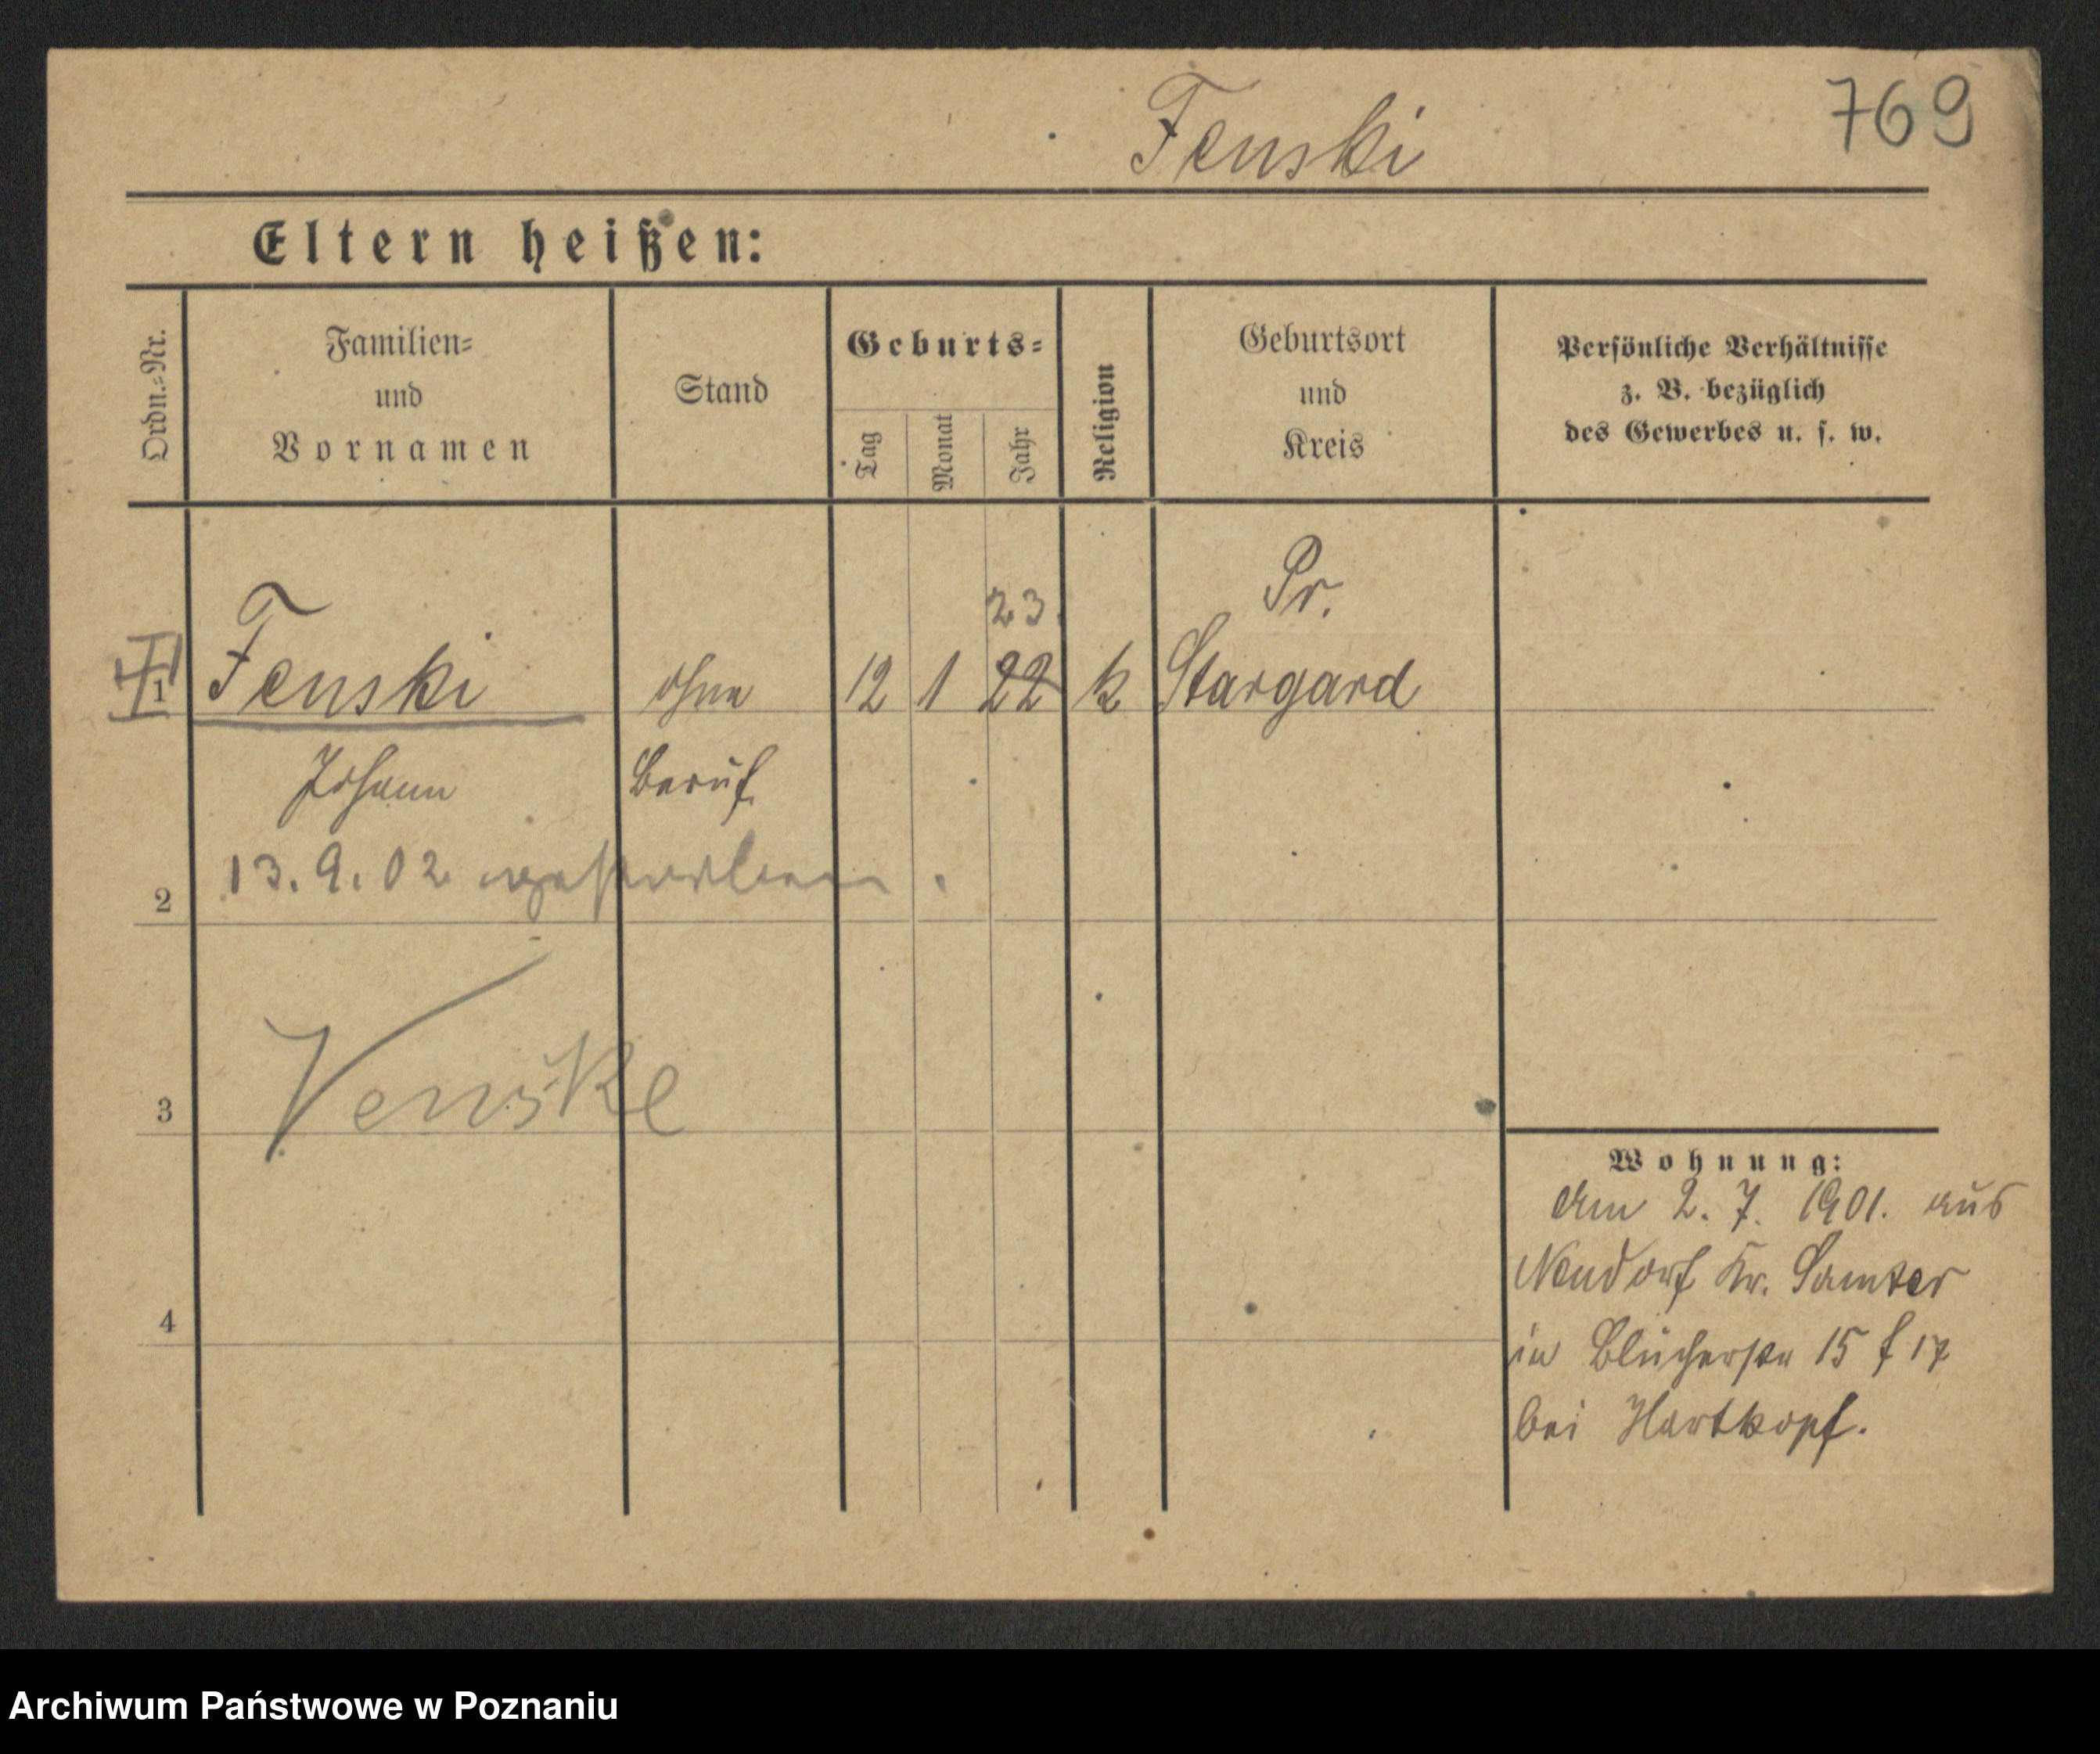 769
Fenski
Eltern heißen:
Ordn.-Nr.
Familien-
und
Vornamen
Stand
Geburts-
Tag
Monat
Jahr
Religion
Geburtsort
und
Kreis
Persönliche Verhältnisse
z. B. bezüglich
des Gewerbes u. s. w.
1
Fenski
ohne
12
1
23.
22
k
Pr.
Stargard
Johann
Beruf.
2
13.9.02 verstorben.
3
Venske
4
Wohnung:
Am 2. 7. 1901. aus
Neudorf Kr. Samter
in Blücherstr 15 f 17
bei Hartkopf.
Archiwum Państwowe w Poznaniu